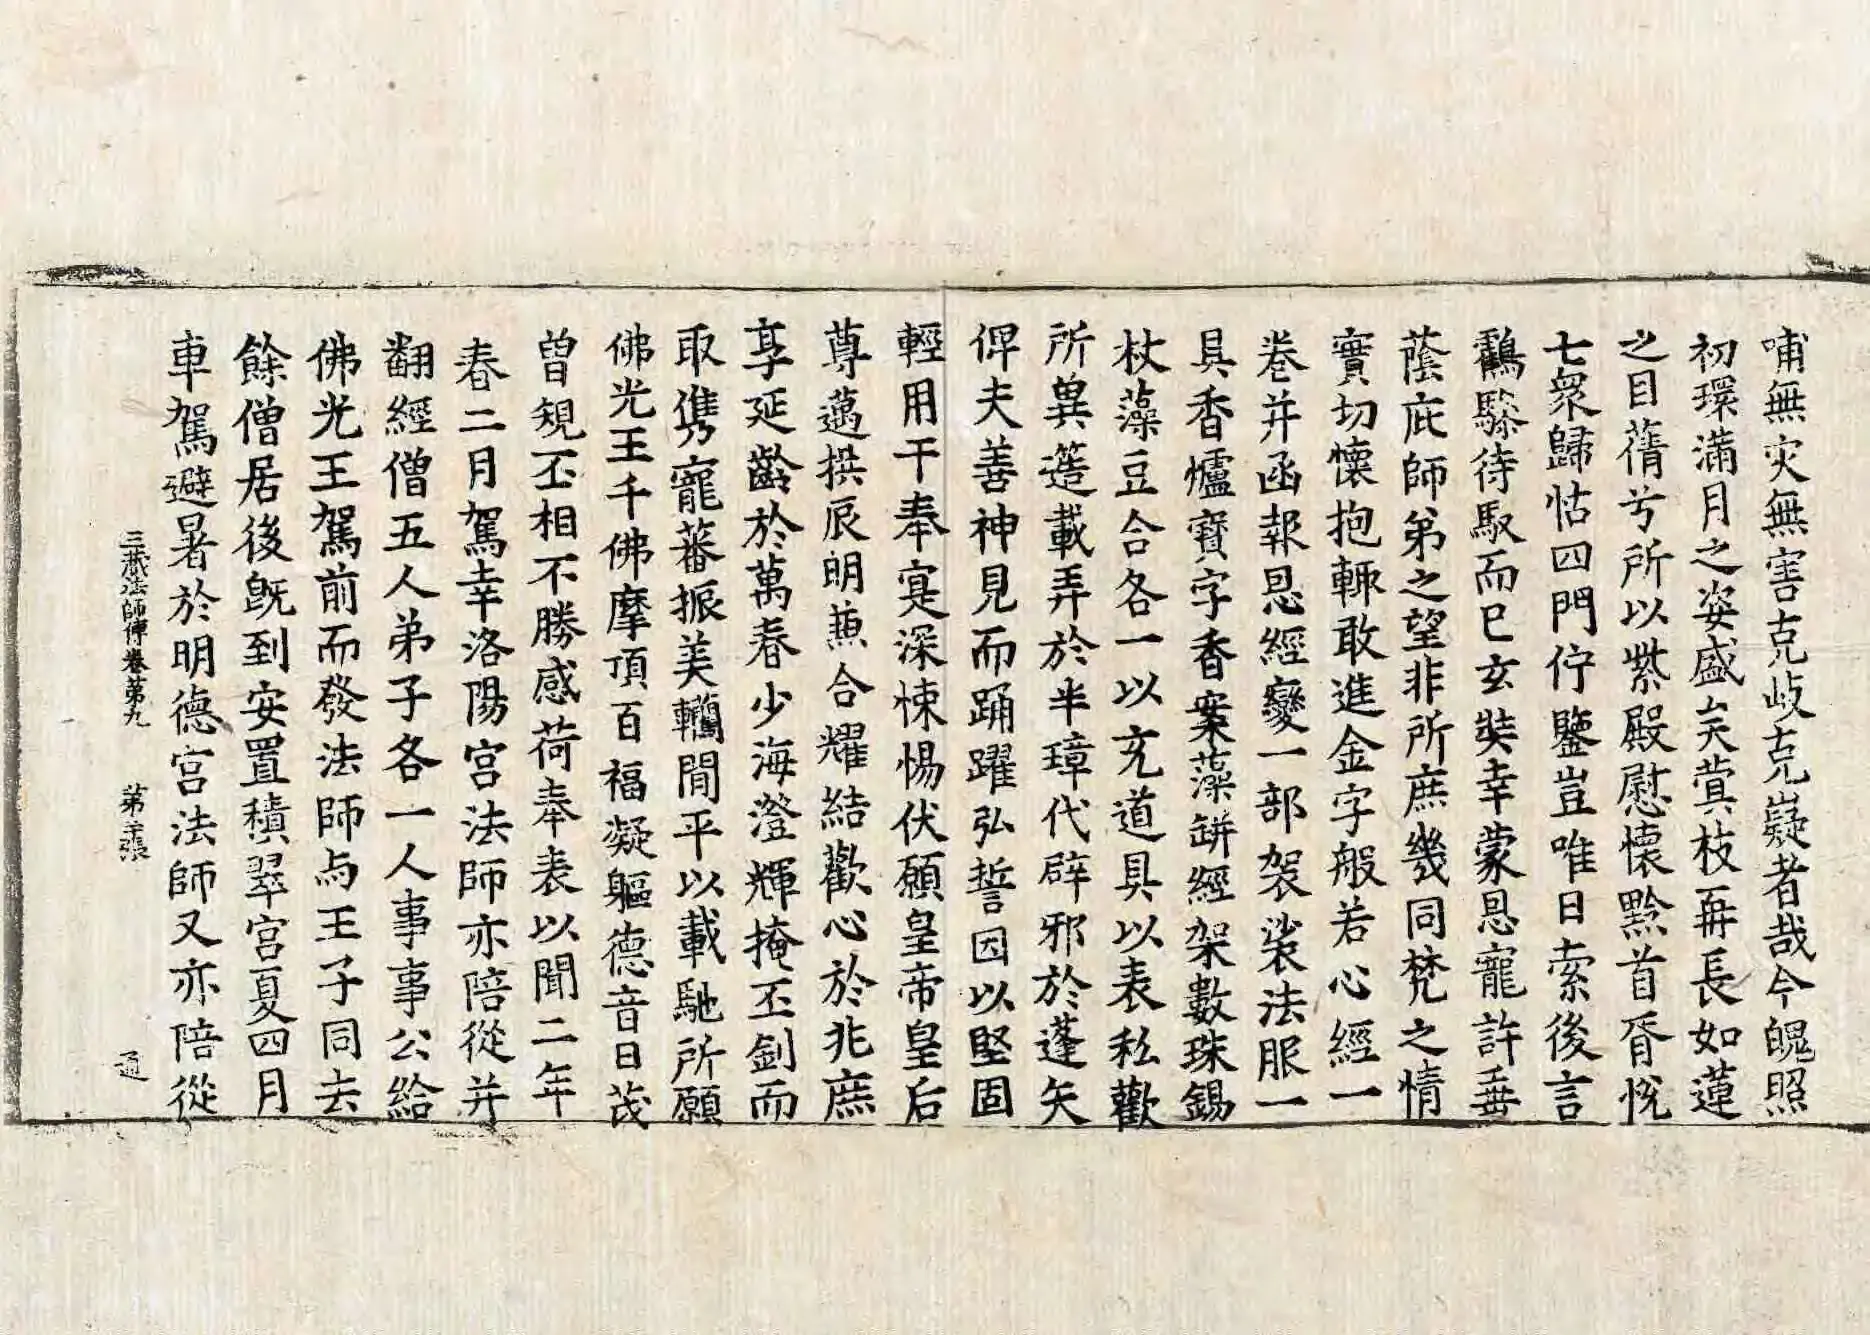 哺無灾無害克岐克嶷者哉今魄照
初環滿月之姿盛矣蓂枝再長如蓮
之目蒨兮所以紫殿慰懷黔首胥悅
七衆歸怙四門佇鑒豈唯日索後言
鸖驂待馭而已玄奘幸蒙恩寵許垂
蔭庇師弟之望非所庶幾同梵之情
實切懷抱輙敢進金字般若心經一
卷并函報恩經變一部袈裟法服一
具香爐寶字香案藻缾經架數珠錫
杖藻豆合各一以充道具以表私歡
所兾簉載弄於半璋代辟邪於蓬矢
俾夫善神見而踊躍弘誓因以堅固
輕用干奉寔深悚惕伏願皇帝皇后
尊邁拱辰明兼合耀結歡心於兆庶
享延齡於萬春少海澄輝掩丕釗而
取雋寵蕃振美轥閒平以載馳所願
佛光王千佛摩頂百福凝軀德音日茂
曾䂓丕相不勝感荷奉表以聞二年
春二月駕幸洛陽宮法師亦陪從并
翻經僧五人弟子各一人事事公給
佛光王駕前而發法師与王子同去
餘僧居後旣到安置積翠宮夏四月
車駕避暑於明德宮法師又亦陪從
三藏法師傳卷第九 第 張